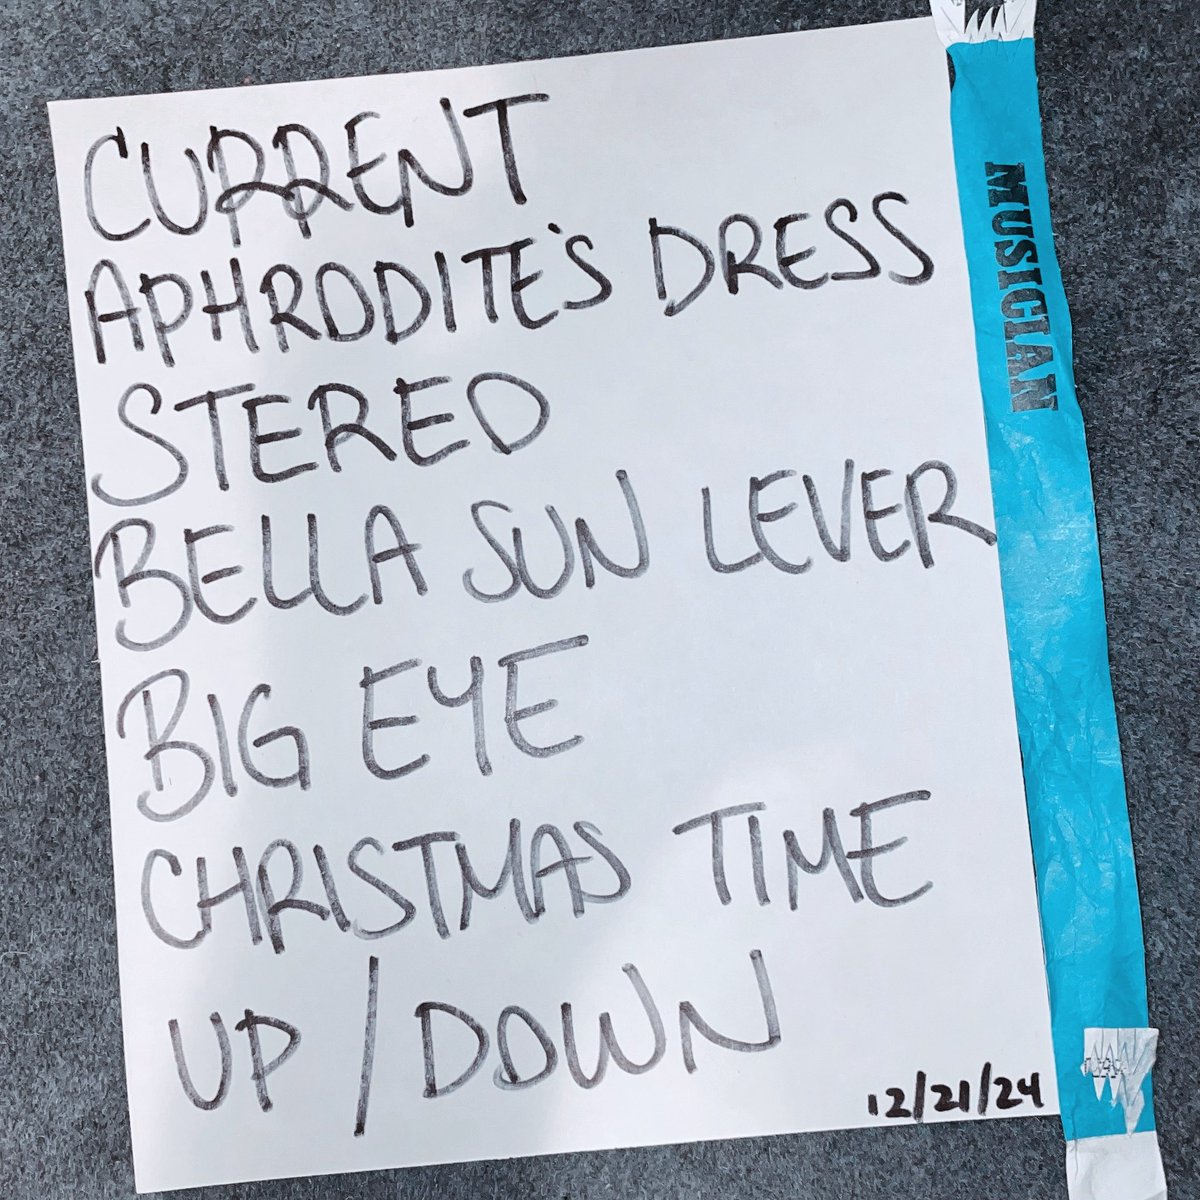 CURRENT
APHRODITE'S DRESS
STEREO
BELLA SUN LEVER
BIG EYE
CHRISTMAS TIME
UP / DOWN
12/21/24
MUSICIAN